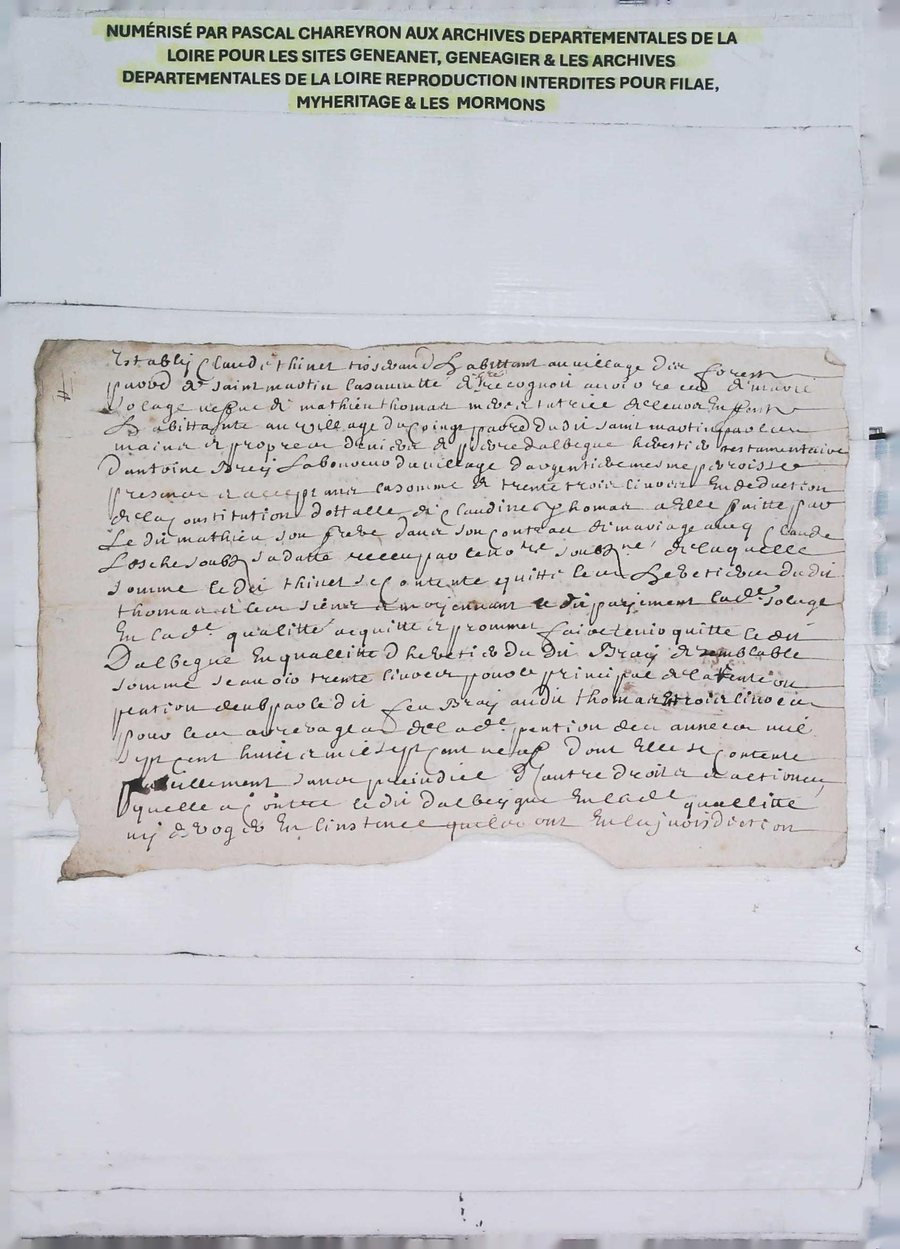 NUMÉRISÉ PAR PASCAL CHAREYRON AUX ARCHIVES DEPARTEMENTALES DE LA
LOIRE POUR LES SITES GENEANET, GENEAGIER & LES ARCHIVES
DEPARTEMENTALES DE LA LOIRE REPRODUCTION INTERDITES POUR FILAE,
MYHERITAGE & LES MORMONS
Establÿ Claude thinet tisserand habittant au village
de saint martin recognoit avoir receu de marie
solage de mathieu thomas
habittante au village du paroisse dudit saint martin par les
mains et propres deniers de pierre dalbegue heretier testamentaire
d'antoine laboureur du village d'argentier mesme parroisse
la somme de trente trois livres En deduction
de la constitution dottalle de Claudine thomas a Elle faitte par
Le dit mathieu son frere dans son contrat de mariage avec Claude
soubz sa datte receu par le no.re soubz.né de laquelle
somme le dit thinet se Contente quitte les heretiers dudit
thomas et les siens et moyennant le dit payement lad.e solage
En lad.e qualitté acquitte et prommet faire tenir quitte le dit
Dalbegue En quallitté d'heretier du dit Bray de semblable
somme scavoir trente livres pour le principal de la
pention deub par le dit feu Bray au dit thomas Et trois livres
pour les arrerages de lad.e pention des années mil
sept cent huict et mil sept cent neuf Dont Elle se Contente
pareillement sans prejudice d'autre droits et actions
quelle a Contre le dit Dalbeygue En lad.e quallitté
ny deroger En l'instance En la jurisdiction